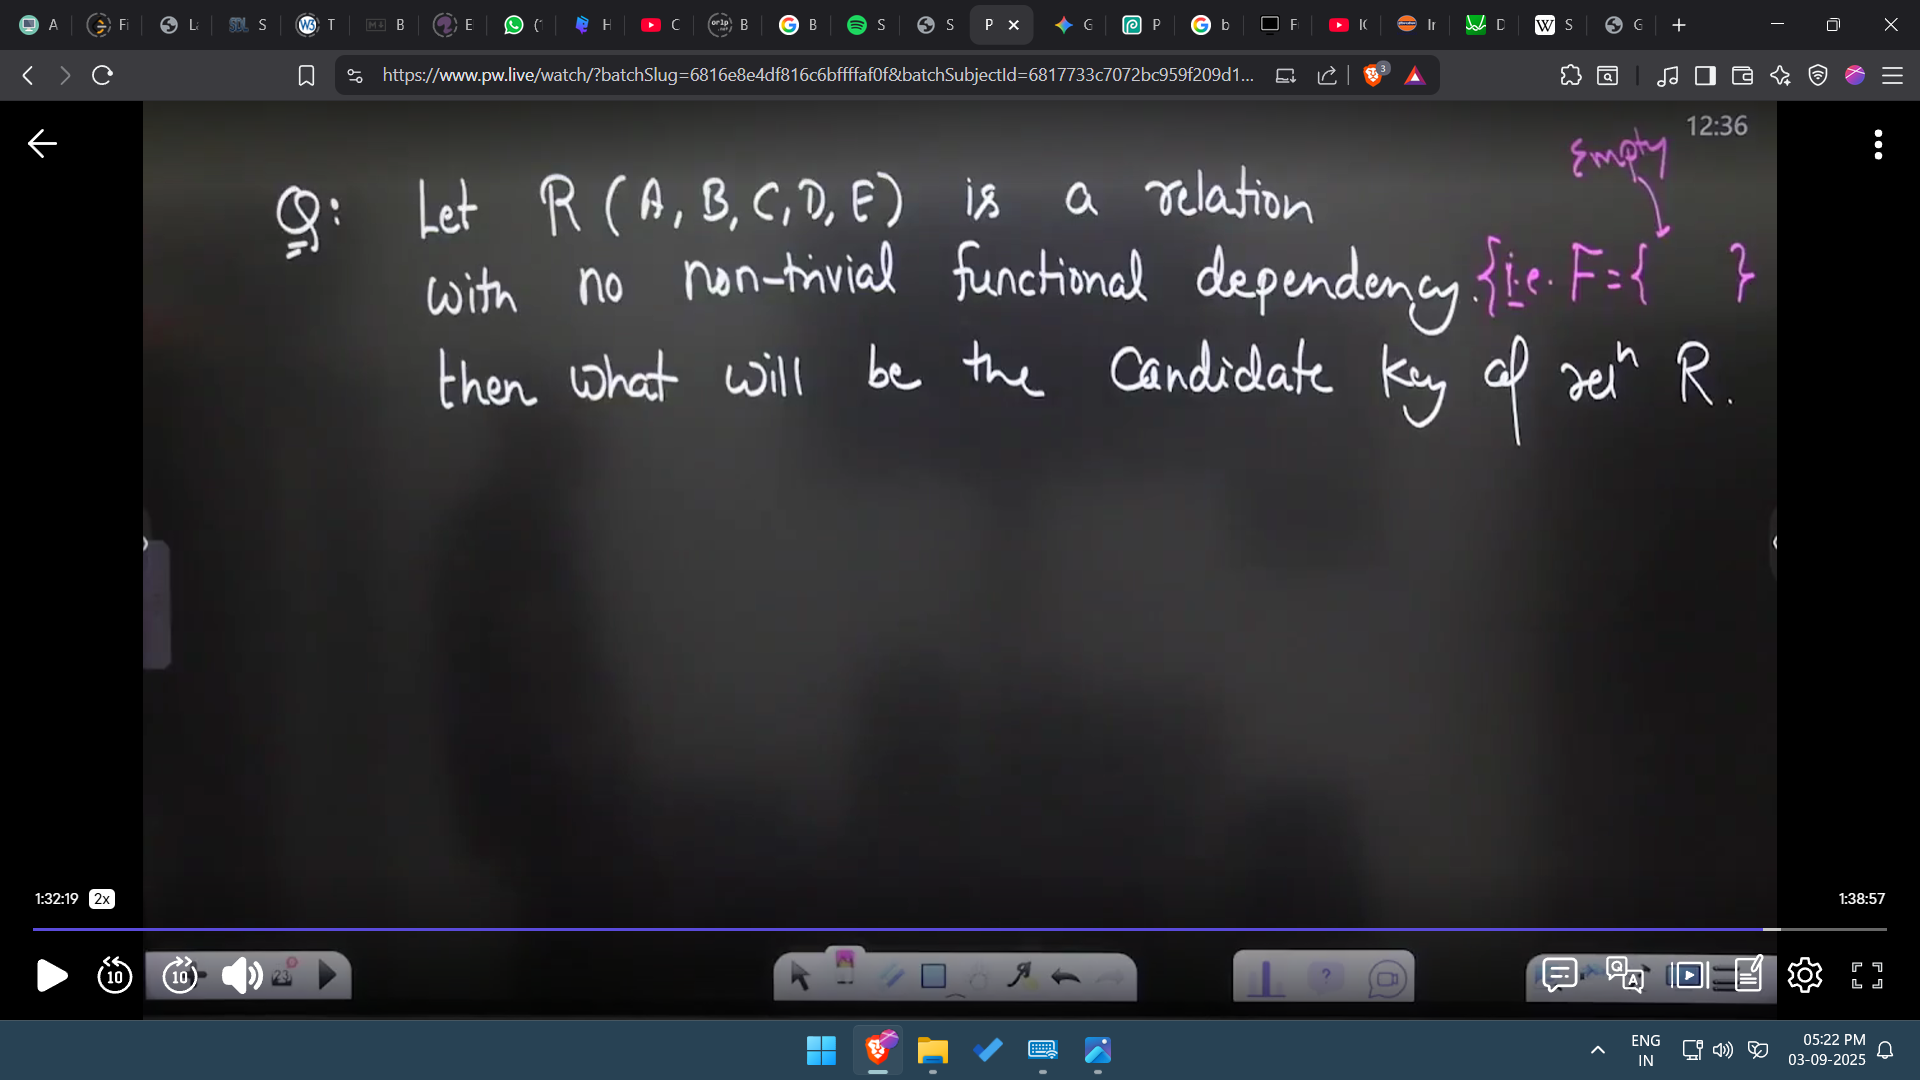 A Fi La SQL S W3 T B E (1 H C B B S S P G P b Fi IC Ir D W S G
https://www.pw.live/watch/?batchSlug=6816e8e4df816c6bffffaf0f&batchSubjectId=6817733c7072bc959f209d1... 3
12:36
Empty
Q: Let R (A, B, C, D, E) is a relation
with no non-trivial functional dependency. {i.e. F = { }
then what will be the Candidate Key of relⁿ R.
1:32:19 2x 1:38:57
10 10 23 ? Q A
ENG
IN
05:22 PM
03-09-2025